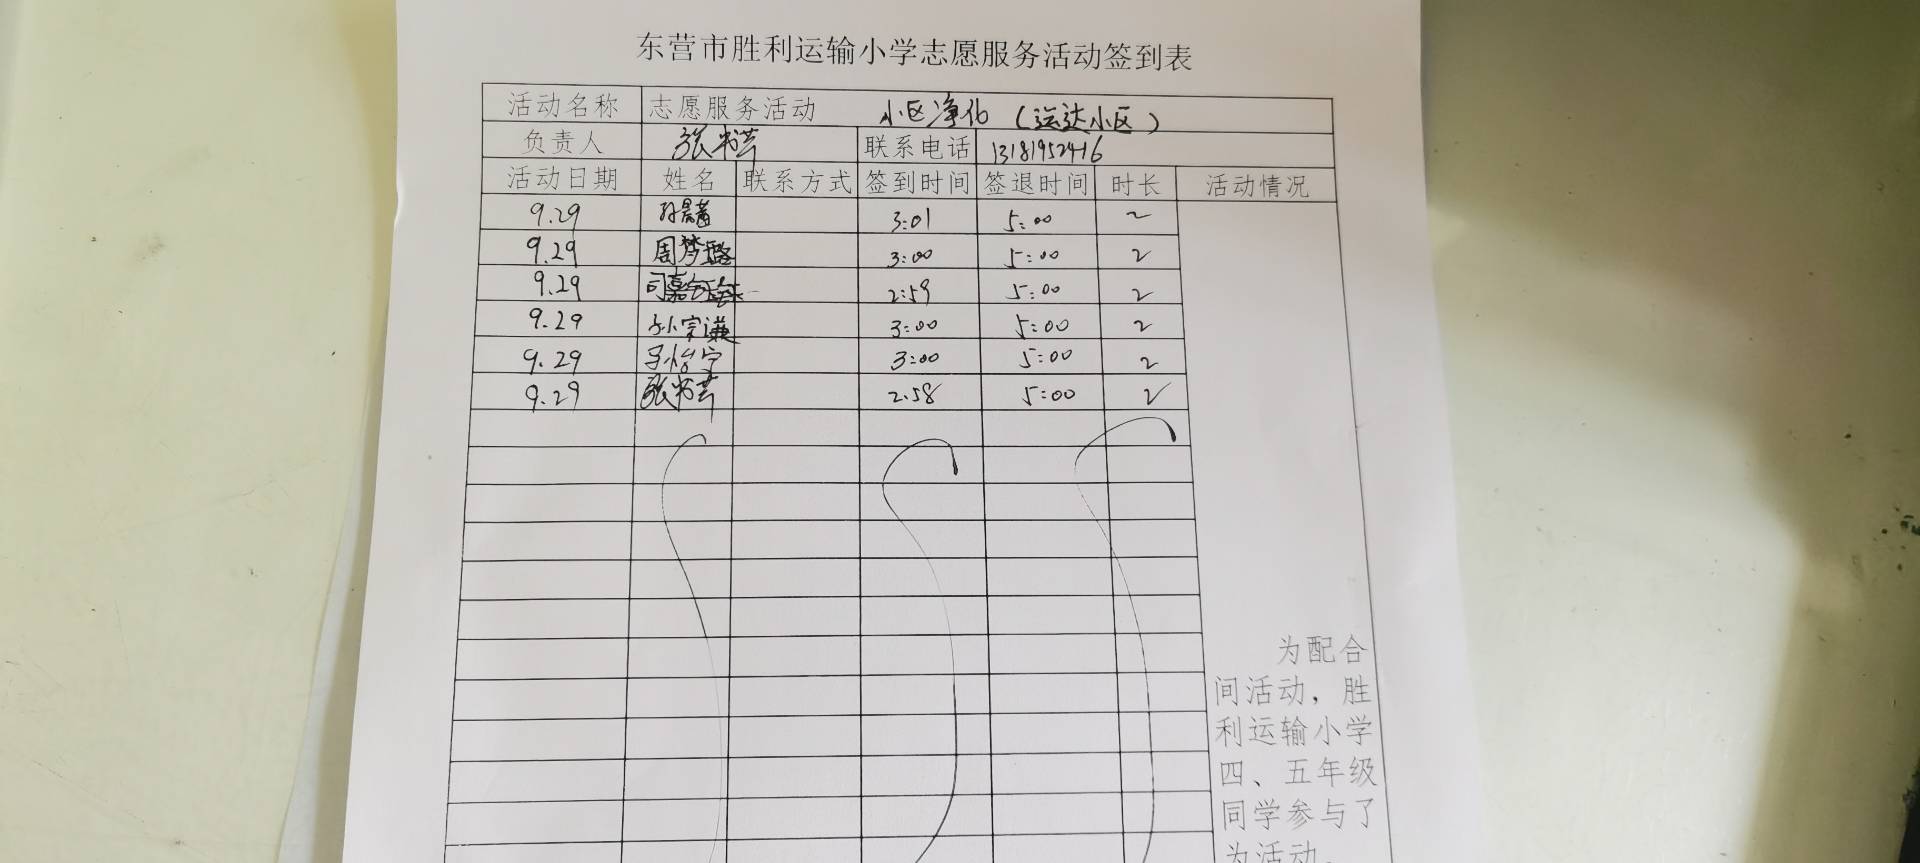 东营市胜利运输小学志愿服务活动签到表
活动名称 志愿服务活动 小区净化（运达小区）
负责人 张书芸 联系电话 13181952416
活动日期 姓名 联系方式 签到时间 签退时间 时长 活动情况
9.29 3:01 5:00 2
9.29 周梦璐 3:00 5:00 2
9.29 司嘉 2:59 5:00 2
9.29 孙宗谦 3:00 5:00 2
9.29 孙怡宁 3:00 5:00 2
9.29 张书芸 2:58 5:00 2
为配合
间活动，胜
利运输小学
四、五年级
同学参与了
为活动。